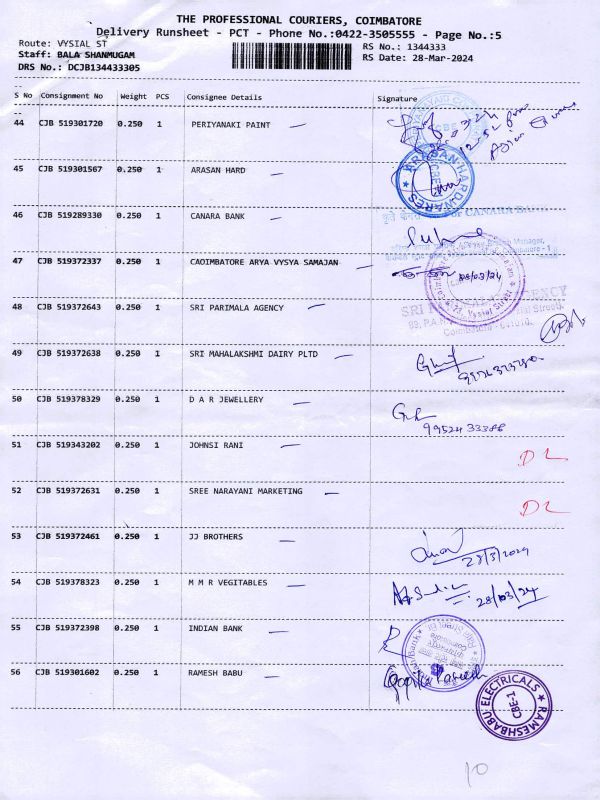 THE PROFESSIONAL COURIERS, COIMBATORE
Delivery Runsheet - PCT - Phone No.:0422-3505555 - Page No.:5
Route: VYSIAL ST
RS No.: 1344333
Staff: BALA SHANMUGAM
RS Date: 28-Mar-2024
DRS No.: DCJB134433305
S No Consignment No Weight PCS Consignee Details Signature
44 CJB 519301720 0.250 1 PERIYANAKI PAINT
45 CJB 519301567 0.250 1 ARASAN HARD
ARASAN HARDWARES
46 CJB 519289330 0.250 1 CANARA BANK
For CANARA BANK
47 CJB 519372337 0.250 1 CAOIMBATORE ARYA VYSYA SAMAJAN
28/03/24
48 CJB 519372643 0.250 1 SRI PARIMALA AGENCY
49 CJB 519372638 0.250 1 SRI MAHALAKSHMI DAIRY PLTD
50 CJB 519378329 0.250 1 D A R JEWELLERY
99524 33388
51 CJB 519343202 0.250 1 JOHNSI RANI
DL
52 CJB 519372631 0.250 1 SREE NARAYANI MARKETING
DL
53 CJB 519372461 0.250 1 JJ BROTHERS
28/3/2024
54 CJB 519378323 0.250 1 M M R VEGITABLES
28/03/24
55 CJB 519372398 0.250 1 INDIAN BANK
56 CJB 519301602 0.250 1 RAMESH BABU
RAMESHBABU ELECTRICALS
CBE-1
10